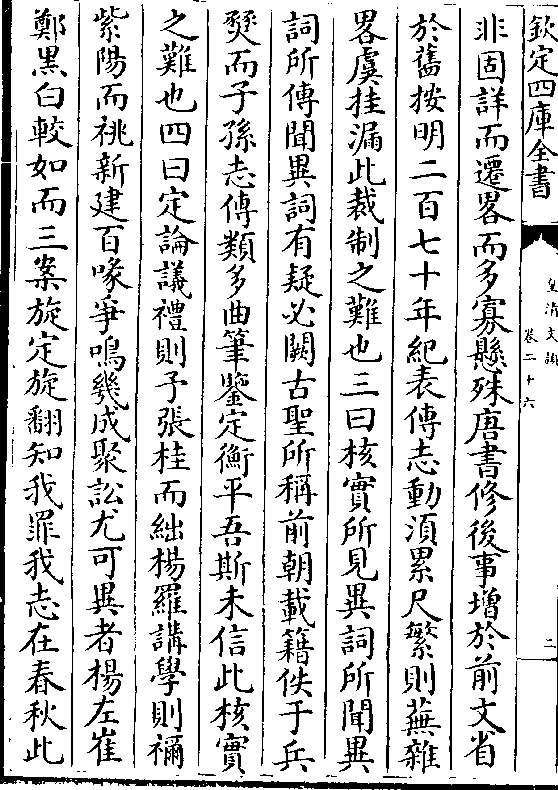 欽定四庫全書
皇清文頴
卷二十六
二
非固詳而遷畧而多寡懸殊唐書修後事增於前文省
於舊按明二百七十年紀表傳志動須累尺繁則蕪雜
畧虞挂漏此裁制之難也三曰核實所見異詞所聞異
詞所傳聞異詞有疑必闕古聖所稱前朝載籍佚于兵
燹而子孫志傳類多曲筆鑒定衡平吾斯未信此核實
之難也四曰定論議禮則予張桂而絀楊羅講學則禰
紫陽而祧新建百喙爭鳴幾成聚訟尤可異者楊左崔
鄭黒白較如而三案旋定旋翻知我罪我志在春秋此